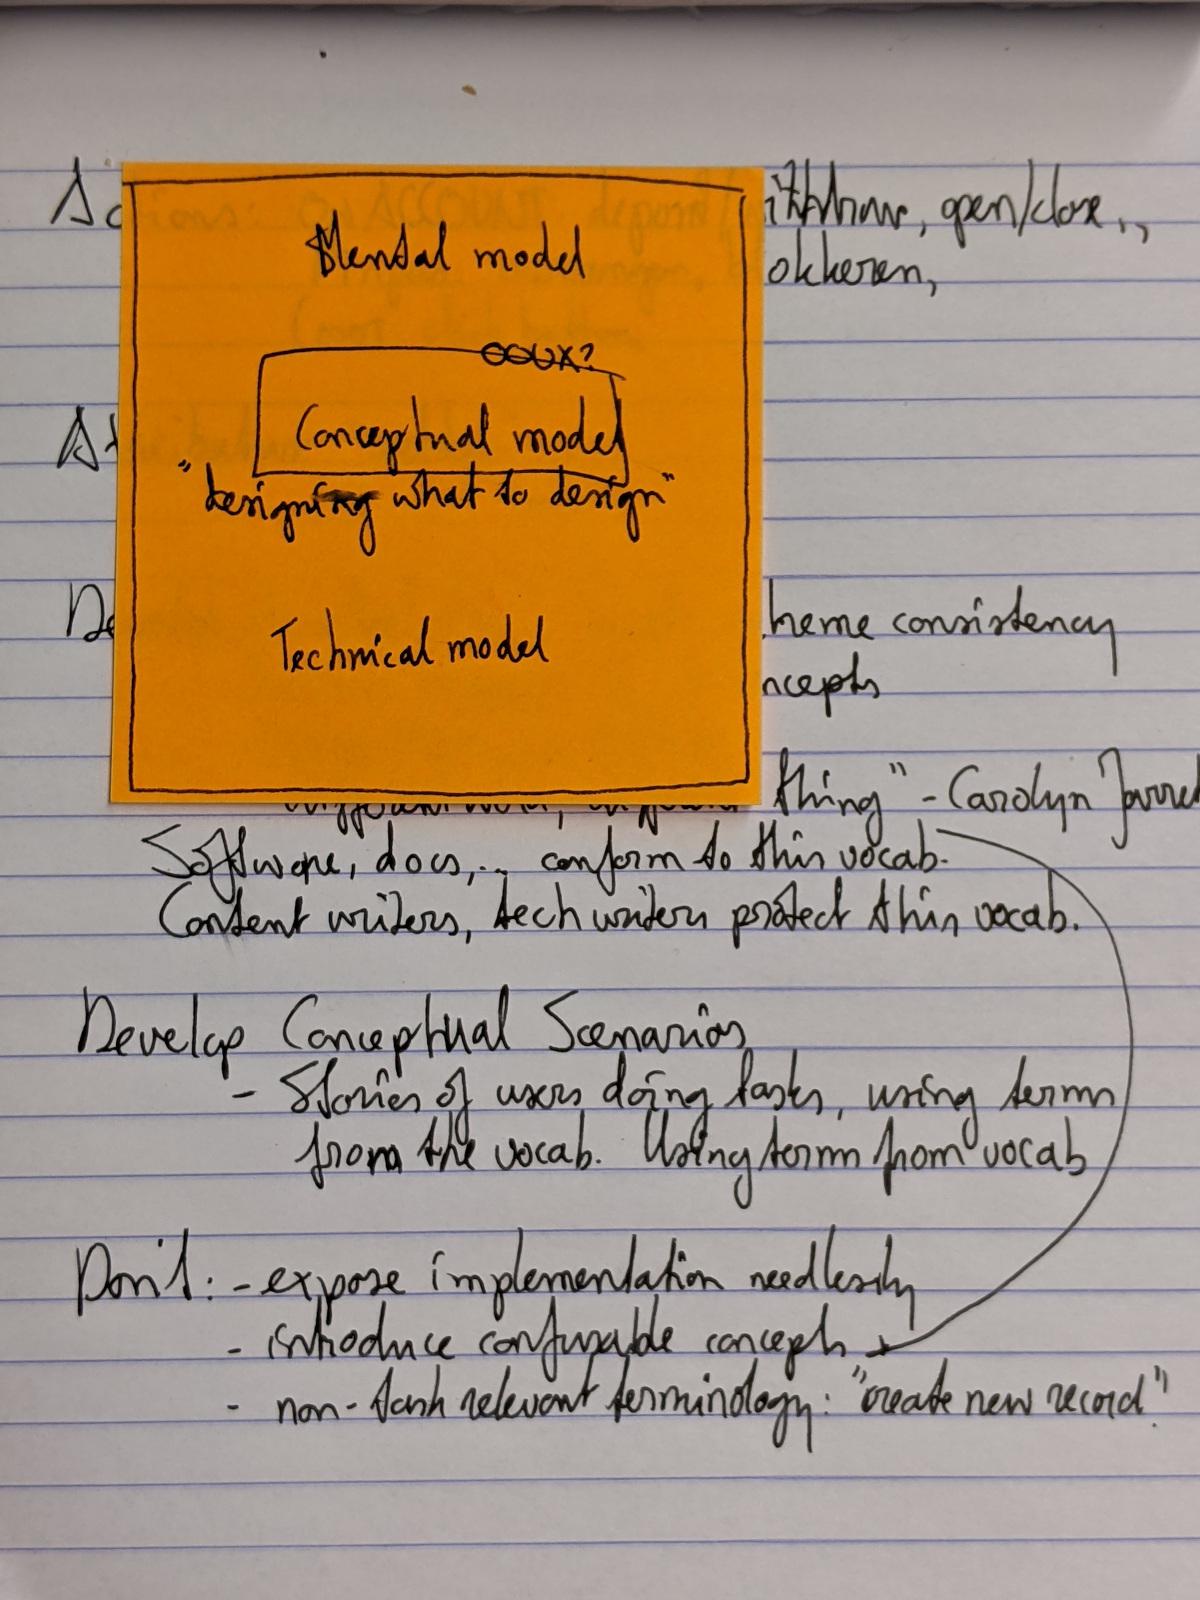 open/close..,
okkeren,
Mental model
OOUX?
Conceptual model
"designing what to design"
Technical model
consistency
thing" - Carolyn
Software, docs,... conform to this vocab.
Content writers, tech writers protect this vocab.
Develop Conceptual Scenarios
- Stories of users doing tasks, using terms
from the vocab. Using terms from vocab
Don't: - expose implementation needlessly
- introduce confusable concepts
- non-task relevant terminology: "create new record"